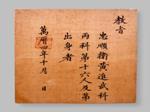 教旨
忠順衛黃進武科
丙科第十六人及第
出身者
萬曆四年十月 日